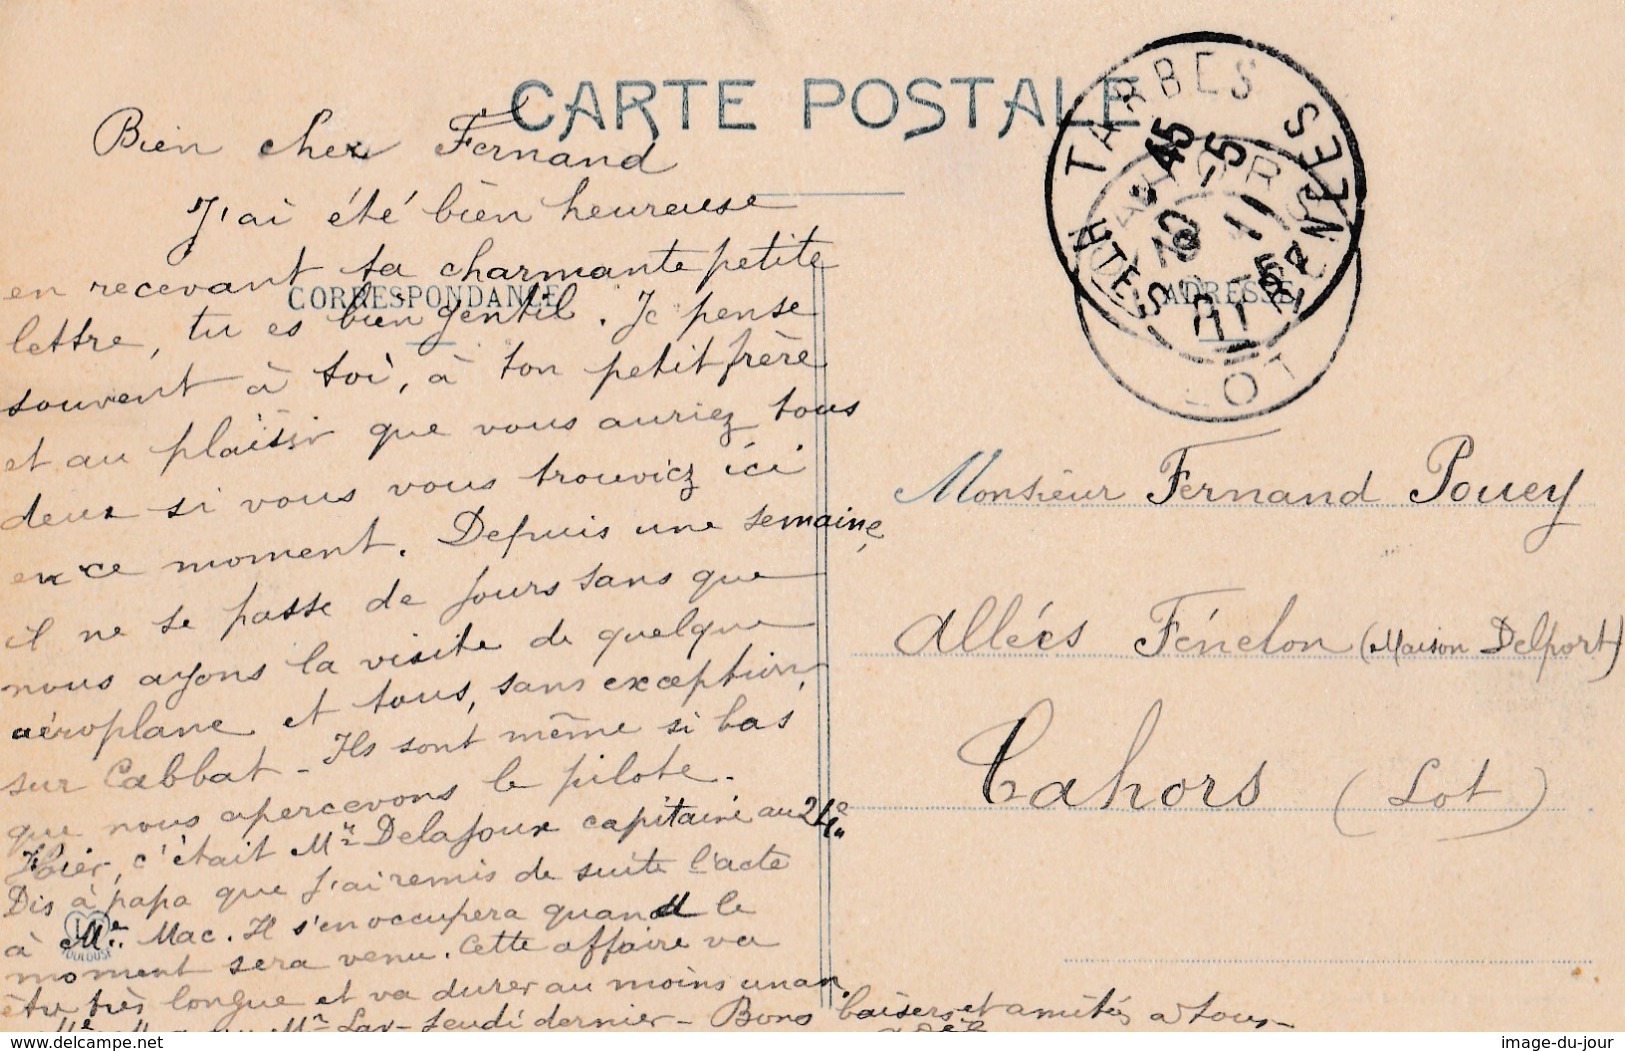 CARTE POSTALE
CORRESPONDANCE
ADRESSE
Bien cher Fernand
J'ai été bien heureuse
en recevant ta charmante petite
lettre, tu es bien gentil. Je pense
souvent à toi, à ton petit frère
et au plaisir que vous auriez tous
deux si vous vous trouviez ici
en ce moment. Depuis une semaine,
il ne se passe de jours sans que
nous ayons la visite de quelque
aéroplane et tous, sans exception,
sur Cabbat - Ils sont même si bas
que nous apercevons le pilote.
Hier, c'était Mr Delafoux capitaine au 24e
Dis à papa que j'ai remis de suite l'acte
à Me. Mac. Il s'en occupera quand le
moment sera venu. Cette affaire va
être très longue et va durer au moins un an.
Mr Lav- Jeudi dernier - Bons baisers et amitiés à tous -
TARBES
HTES PYRENEES
15 45
-5
11
LOT
Monsieur Fernand Pouey
Allées Fénelon (Maison Delport)
Cahors (Lot)
TOULOUSE
delcampe.net
image-du-jour